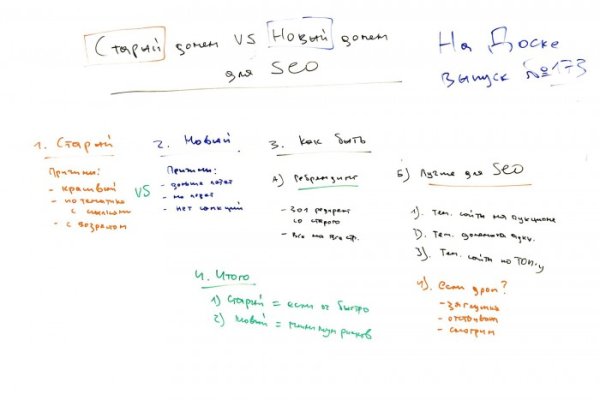 Старый домен VS Новый домен
для SEO
На Доске
выпуск №173
1. Старый
Причины:
- красивый
- по тематике
с ссылками
- с возрастом
VS
2. Новый
Причины:
- дольше
- нет санкций
3. Как быть
А) Ребрендинг
- 301 редирект
со старого
- Все на все стр.
Б) Лучше для SEO
1). Тем. сайты на аукционе
2). Тем. домена аукц.
3). Тем. сайты по ТОП-у
4). Если дроп?
- заглушка
- отстояться
- смотрим
4. Итого
1) Старый = если ок быстро
2) Новый = минимум рисков